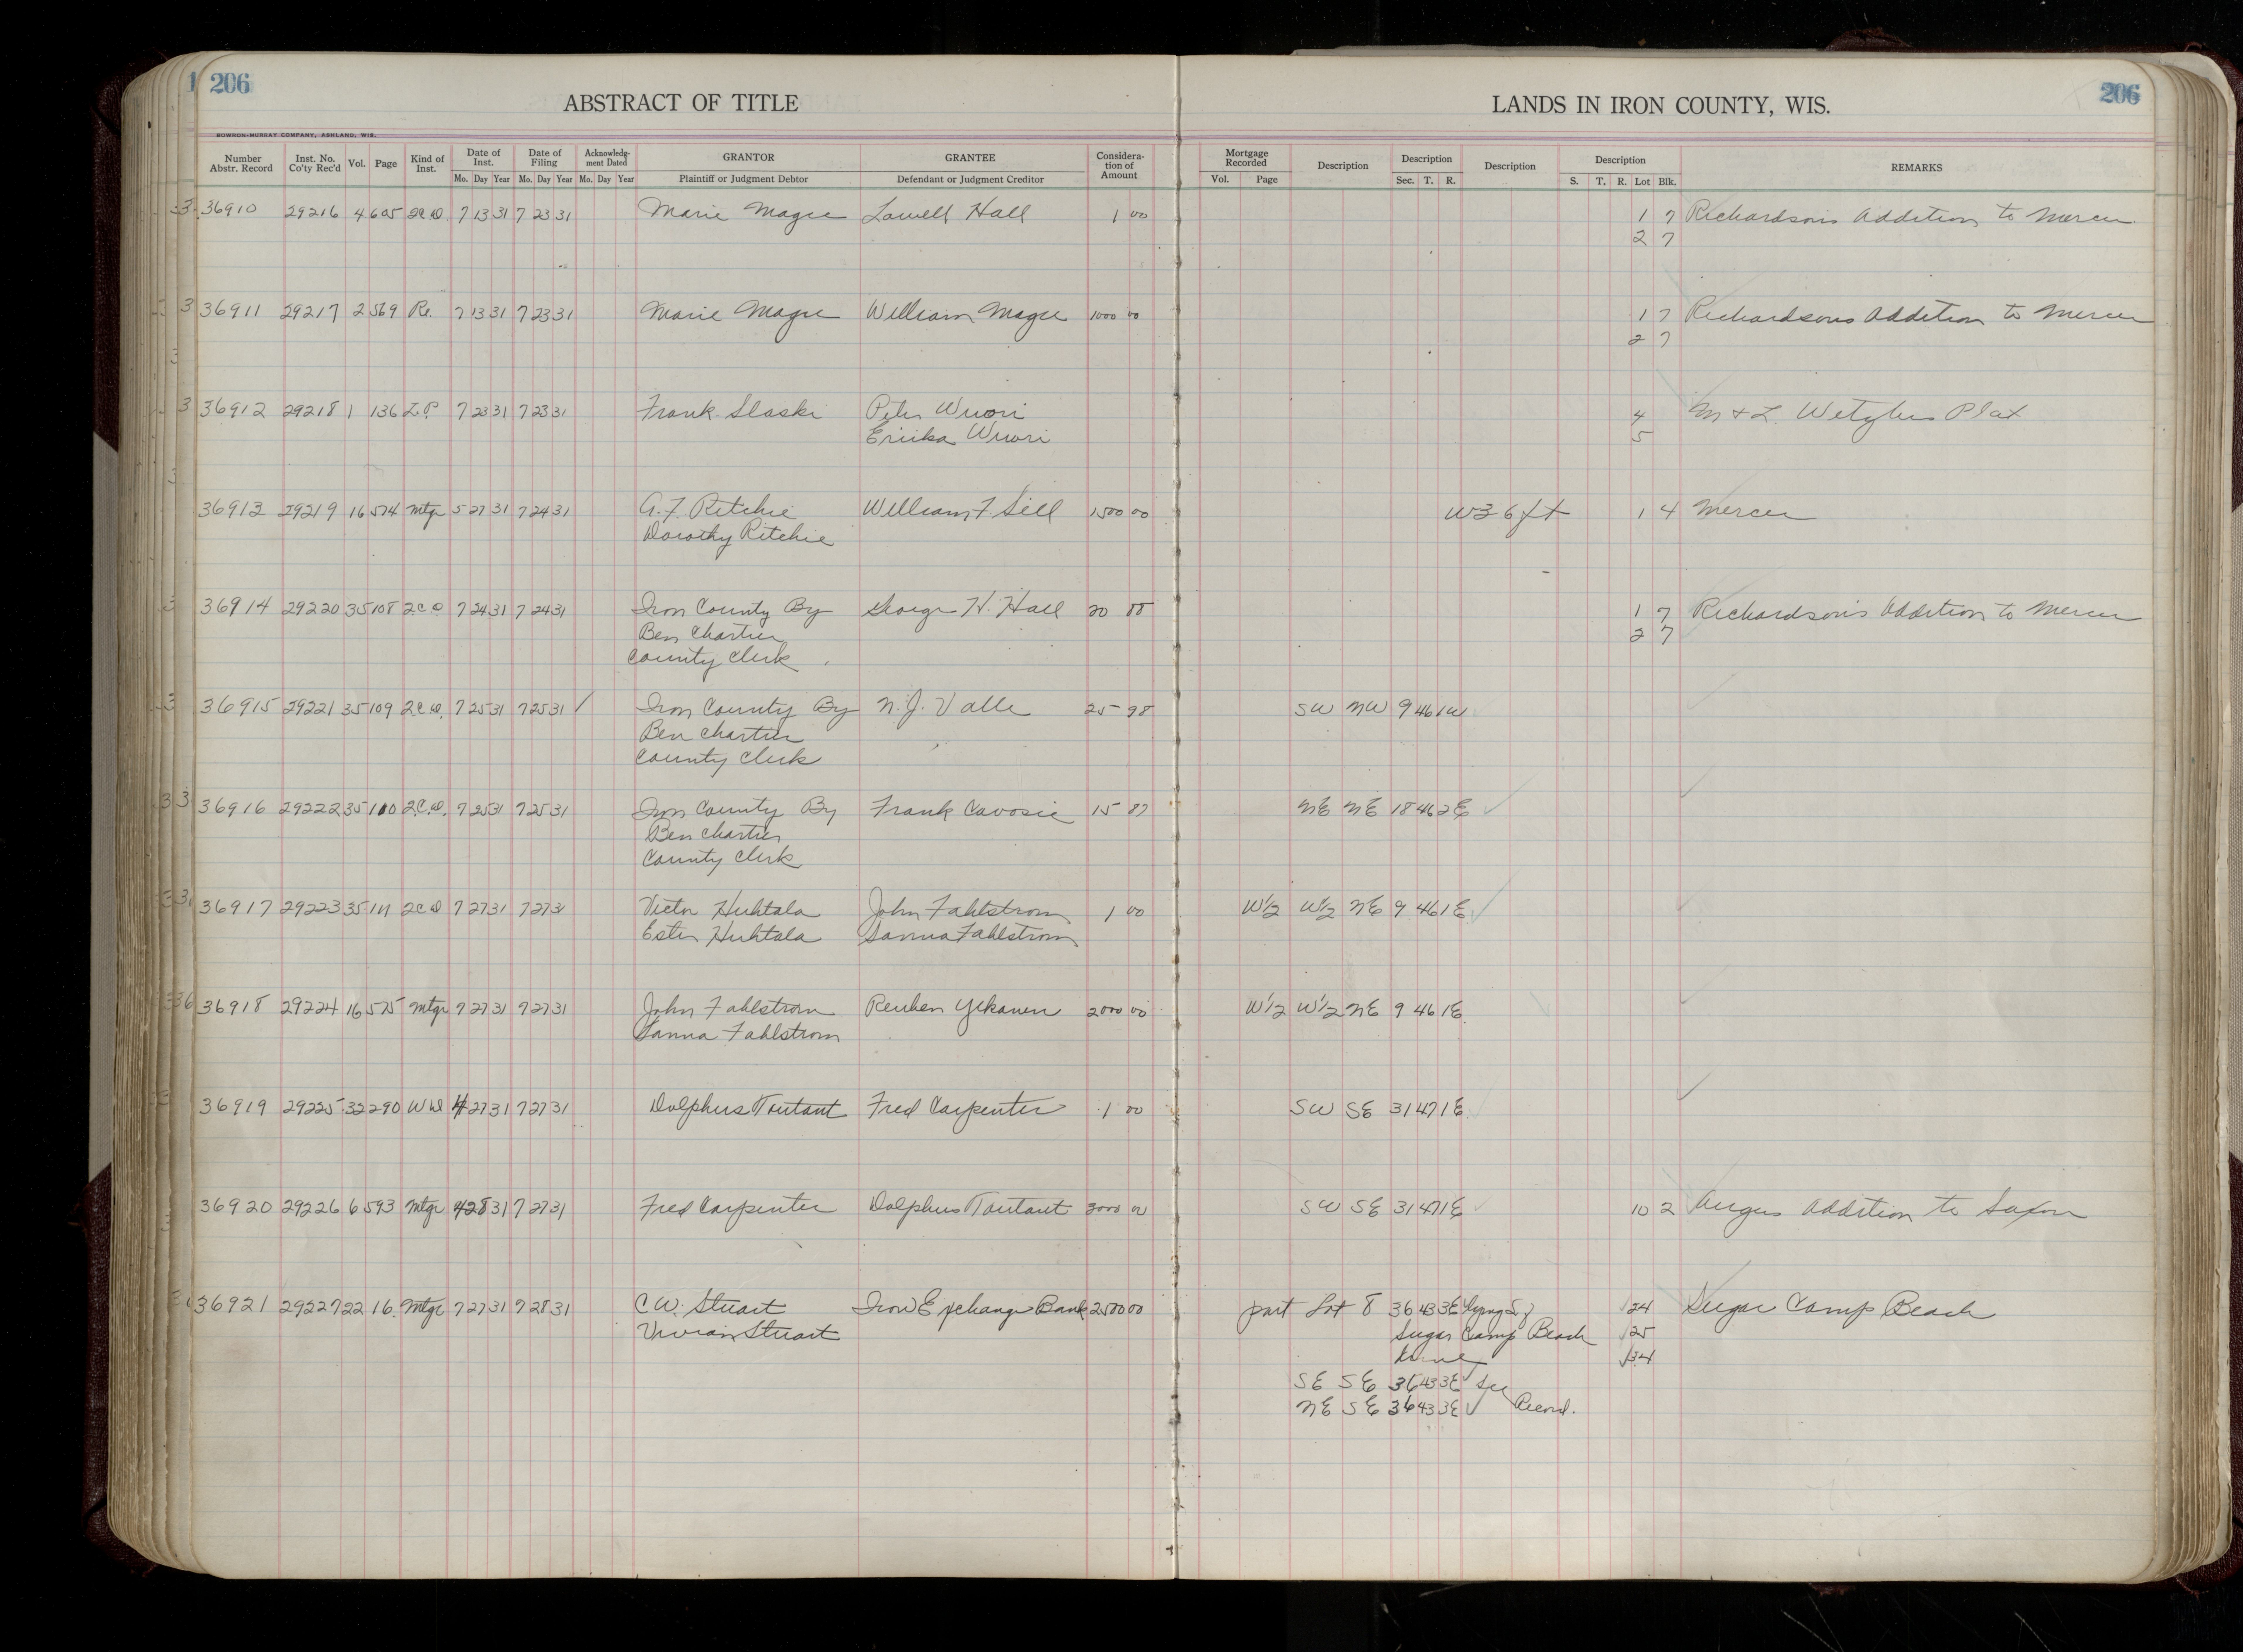 206
206
ABSTRACT OF TITLE
LANDS IN IRON COUNTY, WIS.
BOWRON-MURRAY COMPANY, ASHLAND, WIS.
Number Abstr. Record Inst. No. Co'ty Rec'd Vol. Page Kind of Inst. Date of Inst. Date of Filing Acknowledg-ment Dated GRANTOR GRANTEE Considera-tion of Amount Mortgage Recorded Description Description Description Description REMARKS
Mo. Day Year Mo. Day Year Mo. Day Year Plaintiff or Judgment Debtor Defendant or Judgment Creditor Vol. Page Sec. T. R. S. T. R. Lot Blk.
36910 29216 4 605 7 13 31 7 23 31 Marie Magee Lowell Hall 1 00 1 7 Richardsons Addition to Mercer
2 7
36911 29217 2 569 Re. 7 13 31 7 23 31 Marie Magee William Magee 1000 00 1 7 Richardsons Addition to Mercer
2 7
36912 29218 1 136 L.P. 7 23 31 7 23 31 Frank Slaski Peter Wuori 4 M & L Wetzlers Plat
Eriika Wuori 5
36913 29219 16 574 Mtge 5 27 31 7 24 31 A.F. Ritchie William F Sell 1500 00 W 36 ft 1 4 Mercer
Dorothy Ritchie
36914 29220 35 108 2CD 7 24 31 7 24 31 Iron County By George H. Hall 20 88 1 7 Richardson's Addition to Mercer
Ben Chartier 2 7
County Clerk
36915 29221 35 109 2CD. 7 25 31 7 25 31 Iron County By N.J. Valle 25 98 SW NW 9 46 1W
Ben Chartier
County Clerk
36916 29222 35 110 2C.D. 7 25 31 7 25 31 Iron County By Frank Cavosie 15 87 NE NE 18 46 2E
Ben Chartier
County Clerk
36917 29223 35 111 2CD 7 27 31 7 27 31 Victor Huhtala John Fahlstrom 1 00 W½ W½ NE 9 46 1E
Ester Huhtala Sanna Fahlstrom
36918 29224 16 575 Mtge 7 27 31 7 27 31 John Fahlstrom Reuben 2000 00 W½ W½ NE 9 46 1E
Sanna Fahlstrom
36919 29225 32 290 WD 4 27 31 7 27 31 Dolphus Toutant Fred Carpenter 1 00 SW SE 31 47 1E
36920 29226 6 593 Mtge 4 28 31 7 27 31 Fred Carpenter Dolphus Toutant 3000 00 SW SE 31 47 1E 10 2 Angus Addition to Saxon
36921 29227 22 16. Mtge 7 27 31 7 28 31 C.W. Stuart Iron Exchange Bank 2500 00 part Lot 8 36 43 3E lying S of 24 Sugar Camp Beach
Vivian Stuart Sugar Camp Beach 25
34
SE SE 36 43 3E See
NE SE 36 43 3E Record.